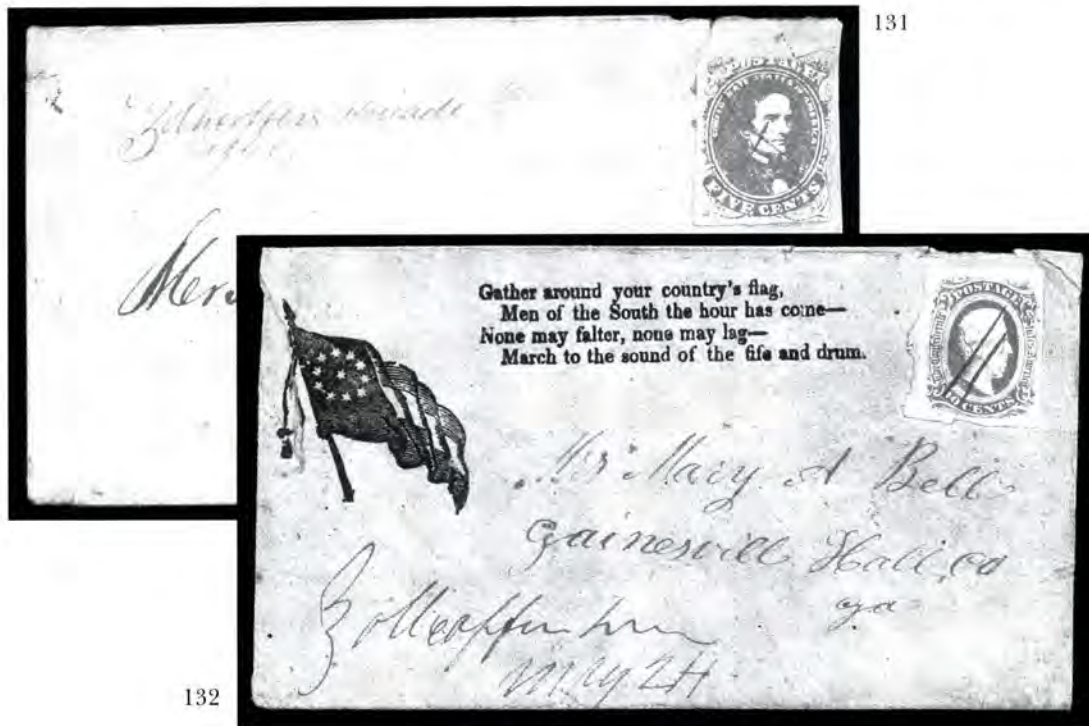 131
POSTAGE
CONFEDERATE STATES OF AMERICA
FIVE CENTS
Gather around your country's flag,
Men of the South the hour has come—
None may falter, none may lag—
March to the sound of the fife and drum.
POSTAGE
10 CENTS
Mrs Mary A Bell
Gainesville Hall, co
ga
May 24
132